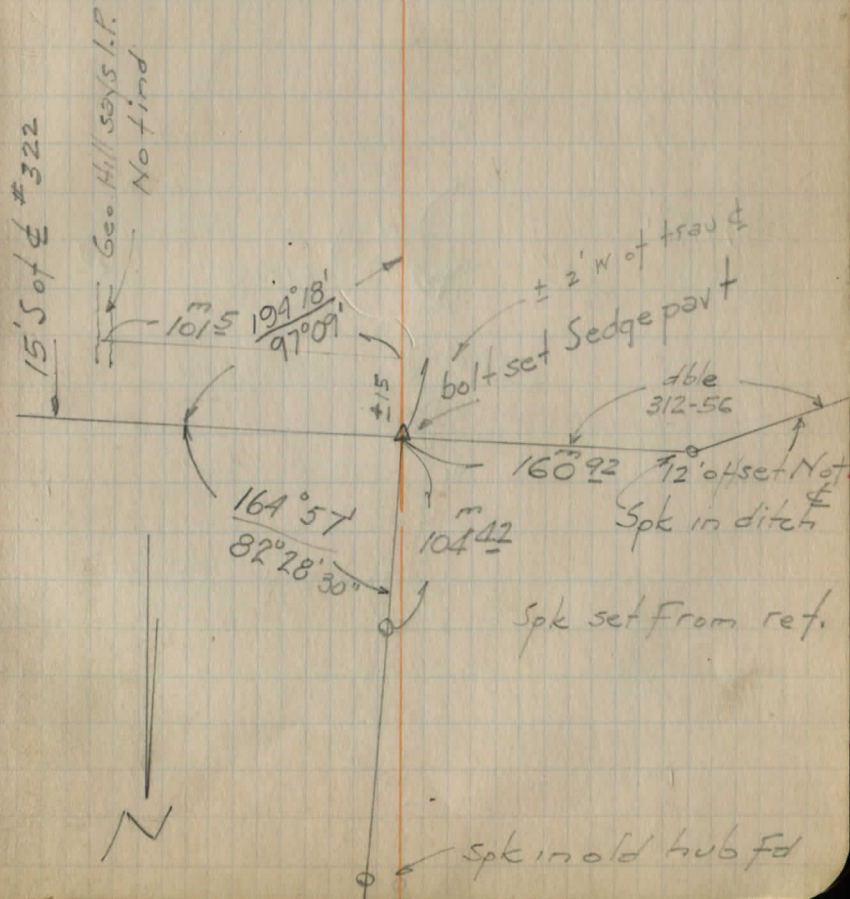 15' S of ℄ #322
Geo Hill says I.P.
No find
m
101 5
194°18'
97°09'
± 2' W of trav ℄
bolt set S edge pavt
±15
dble
312-56
m
160 92
12' offset N of
℄
Spk in ditch
164°57'
82°28'30"
m
104 42
Spk set From ref.
N
Spk in old hub Fd